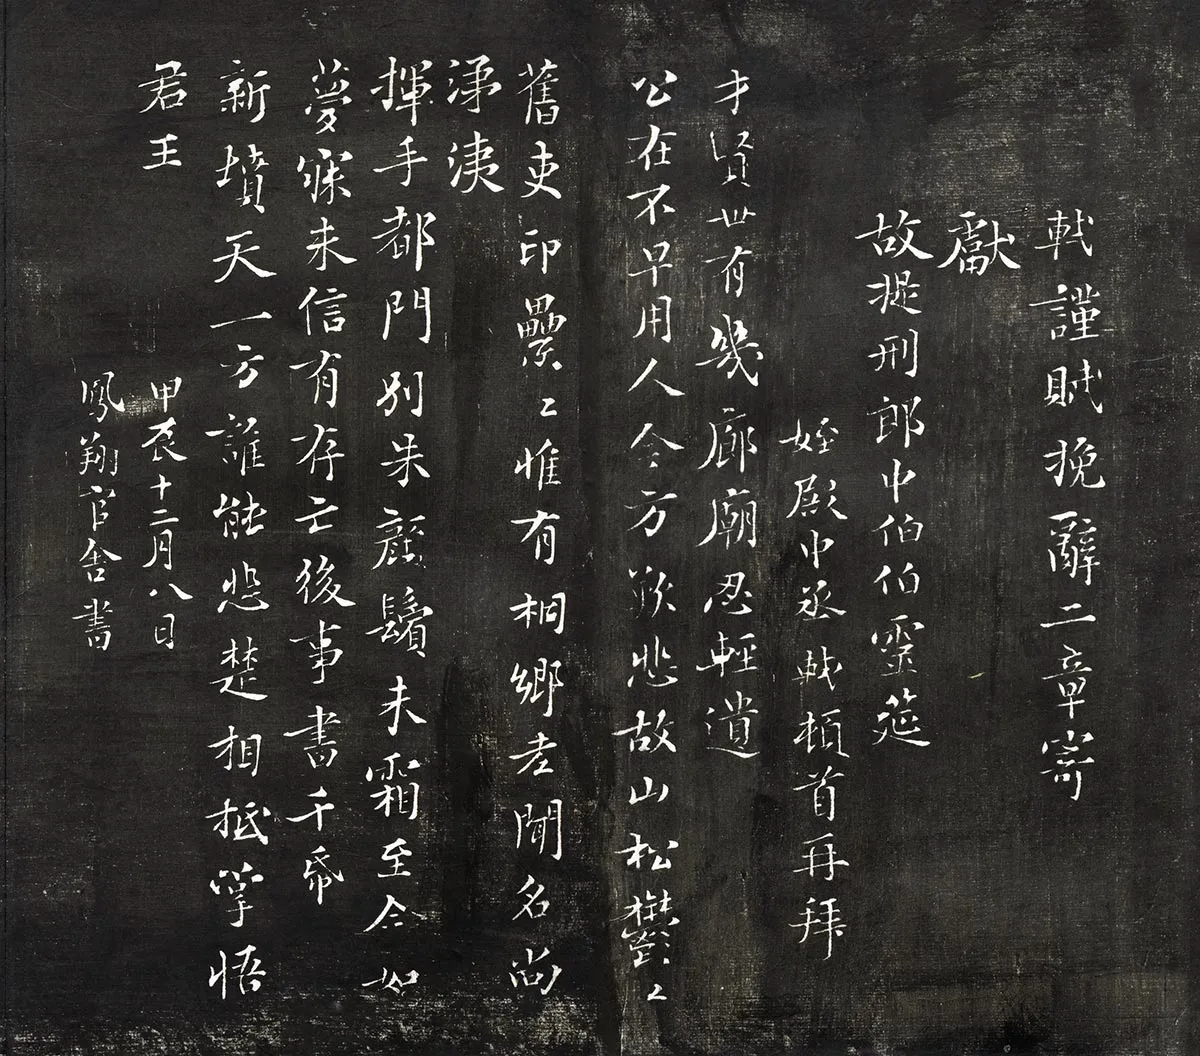 軾謹賦挽辭二章寄
獻
故提刑郎中伯伯靈筵
姪殿中丞軾頓首再拜
才賢世有幾廊廟忍輕遺
公在不早用人今方歎悲故山松鬱〻
舊吏印纍〻惟有桐鄉老聞名尚
涕洟
揮手都門別朱顏鬢未霜至今如
夢寐未信有存亡後事書千帋
新墳天一方誰能悲楚相抵掌悟
君王
甲辰十二月八日
鳳翔官舍書